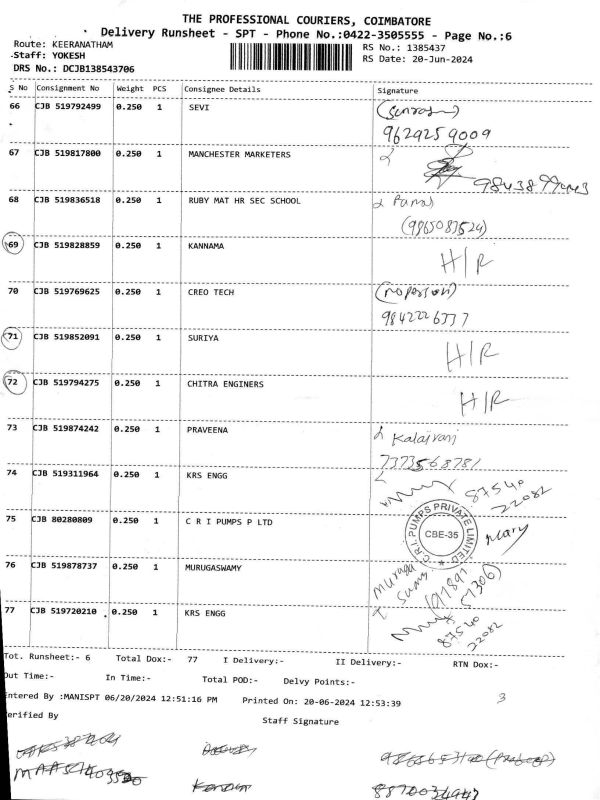 THE PROFESSIONAL COURIERS, COIMBATORE
Delivery Runsheet - SPT - Phone No.:0422-3505555 - Page No.:6
Route: KEERANATHAM RS No.: 1385437
Staff: YOKESH RS Date: 20-Jun-2024
DRS No.: DCJB138543706
S No Consignment No Weight PCS Consignee Details Signature
66 CJB 519792499 0.250 1 SEVI
9629259009
67 CJB 519817800 0.250 1 MANCHESTER MARKETERS
68 CJB 519836518 0.250 1 RUBY MAT HR SEC SCHOOL
(9865083524)
69 CJB 519828859 0.250 1 KANNAMA H/R
70 CJB 519769625 0.250 1 CREO TECH
9842226777
71 CJB 519852091 0.250 1 SURIYA H/R
72 CJB 519794275 0.250 1 CHITRA ENGINERS H/R
73 CJB 519874242 0.250 1 PRAVEENA Kalaivani
7373568781
74 CJB 519311964 0.250 1 KRS ENGG 87540
22082
75 CJB 80280809 0.250 1 C R I PUMPS P LTD C.R.I. PUMPS PRIVATE LIMITED CBE-35 Mary
76 CJB 519878737 0.250 1 MURUGASWAMY Muruga
Samy (91891
51306)
77 CJB 519720210 0.250 1 KRS ENGG 87540
22082
Tot. Runsheet:- 6 Total Dox:- 77 I Delivery:- II Delivery:- RTN Dox:-
Out Time:- In Time:- Total POD:- Delvy Points:-
Entered By :MANISPT 06/20/2024 12:51:16 PM Printed On: 20-06-2024 12:53:39 3
Verified By Staff Signature